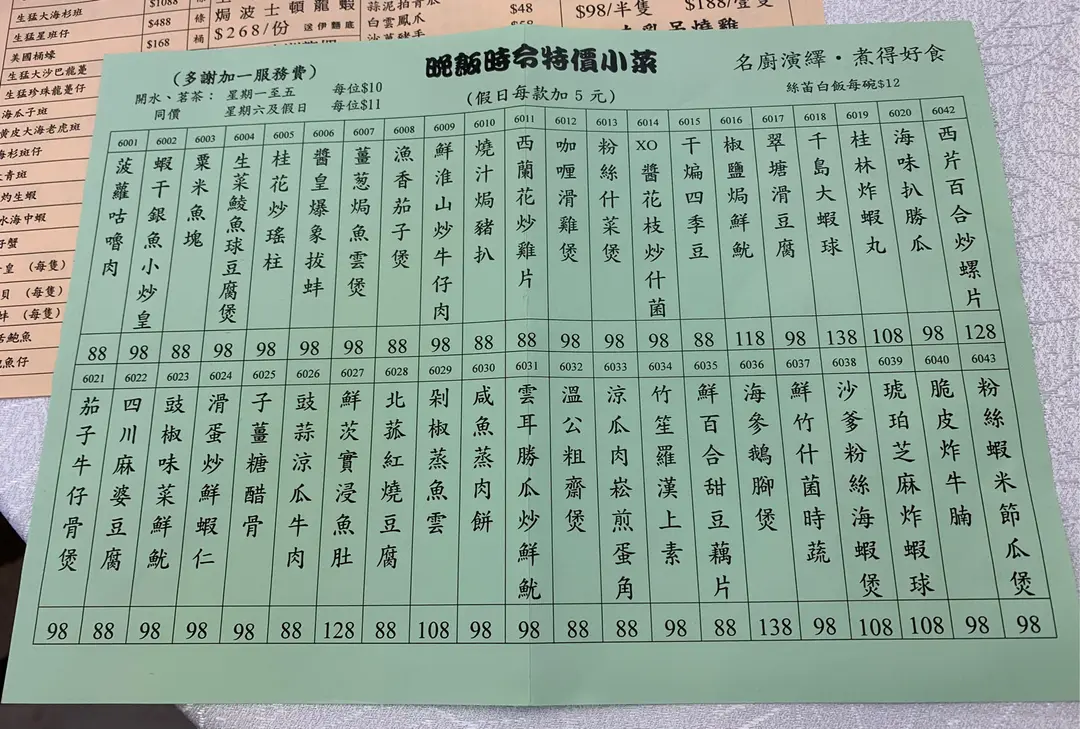 生猛大海杉班
$1088
條
生猛星班仔
$488
條
美國桶蠔
$168
桶
生猛大沙巴龍躉
生猛珍珠龍躉仔
海瓜子班
黃皮大海老虎班
海杉班仔
青班
灼生蝦
水海中蝦
仔蟹
皇 (每隻)
貝 (每隻)
蚌 (每隻)
鮑魚
魚仔
焗波士頓龍蝦
$268/份 送伊麵底
蒜泥拍青瓜
白雲鳳爪
$48
沙薑豬手
$58
$98/半隻 $188/壹隻
晚飯時令特價小菜
名廚演繹・煮得好食
(多謝加一服務費)
開水、茗茶: 星期一至五 每位$10
同價 星期六及假日 每位$11
(假日每款加 5 元)
絲苗白飯每碗$12
6001 菠蘿咕嚕肉 88
6002 蝦干銀魚小炒皇 98
6003 粟米魚塊 88
6004 生菜鯪魚球豆腐煲 98
6005 桂花炒瑤柱 98
6006 醬皇爆象拔蚌 98
6007 薑葱焗魚雲煲 98
6008 漁香茄子煲 88
6009 鮮淮山炒牛仔肉 98
6010 燒汁焗豬扒 88
6011 西蘭花炒雞片 88
6012 咖喱滑雞煲 98
6013 粉絲什菜煲 98
6014 XO醬花枝炒什菌 98
6015 干煸四季豆 88
6016 椒鹽焗鮮魷 118
6017 翠塘滑豆腐 98
6018 千島大蝦球 138
6019 桂林炸蝦丸 108
6020 海味扒勝瓜 98
6042 西芹百合炒螺片 128
6021 茄子牛仔骨煲 98
6022 四川麻婆豆腐 88
6023 豉椒味菜鮮魷 98
6024 滑蛋炒鮮蝦仁 98
6025 子薑糖醋骨 98
6026 豉蒜涼瓜牛肉 88
6027 鮮茨實浸魚肚 128
6028 北菰紅燒豆腐 88
6029 剁椒蒸魚雲 108
6030 咸魚蒸肉餅 98
6031 雲耳勝瓜炒鮮魷 98
6032 溫公粗齋煲 88
6033 涼瓜肉崧煎蛋角 88
6034 竹笙羅漢上素 98
6035 鮮百合甜豆藕片 88
6036 海參鵝腳煲 138
6037 鮮竹什菌時蔬 98
6038 沙爹粉絲海蝦煲 108
6039 琥珀芝麻炸蝦球 108
6040 脆皮炸牛腩 98
6043 粉絲蝦米節瓜煲 98